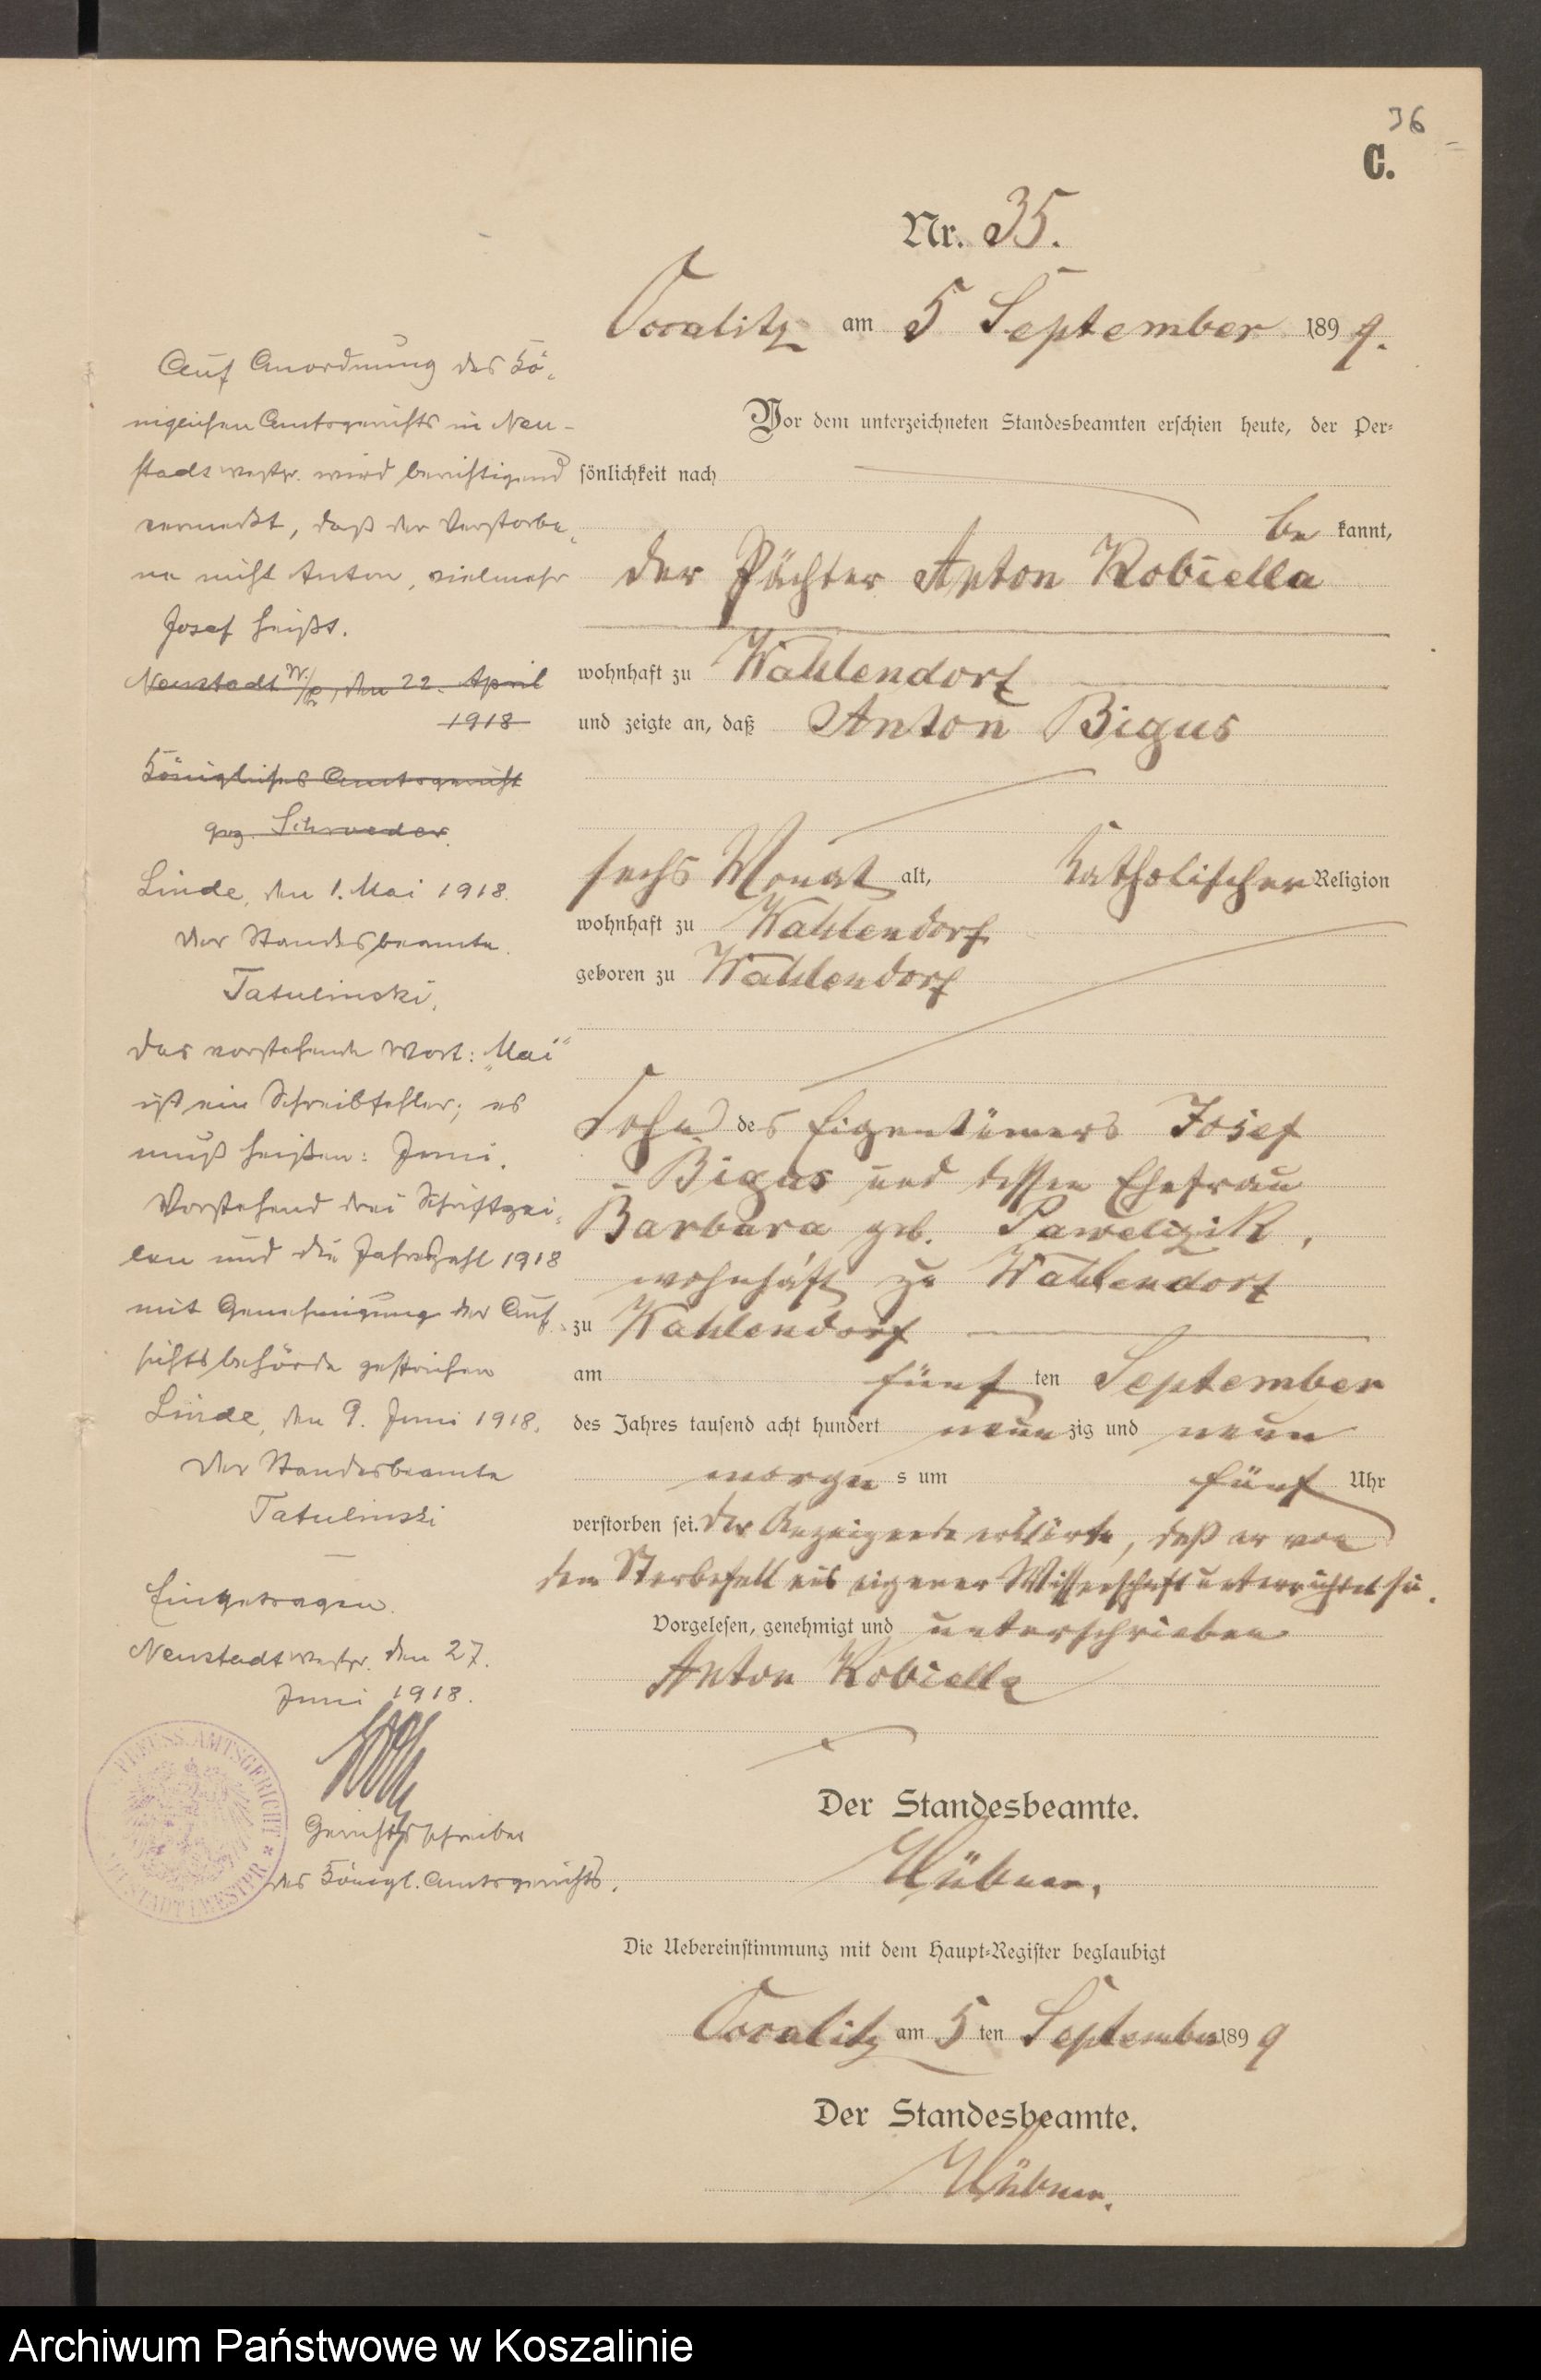 36
C.
Nr. 35.
Occalitz am 5 September 1899.
Vor dem unterzeichneten Standesbeamten erschien heute, der Per-
sönlichkeit nach
be kannt,
der Pächter Anton Kobiella
wohnhaft zu Wahlendorf
und zeigte an, daß Anton Bigus
sechs Monat alt, katholischer Religion
wohnhaft zu Wahlendorf
geboren zu Wahlendorf
Sohn des Eigentümers Josef
Bigus und dessen Ehefrau
Barbara geb. Pawelczik,
wohnhaft zu Wahlendorf
zu Wahlendorf
am fünf ten September
des Jahres tausend acht hundert neun zig und neun
morgen s um fünf Uhr
verstorben sei. Der Anzeigende erklärte, daß er von
dem Sterbefall aus eigener Wissenschaft unterrichtet sei.
Vorgelesen, genehmigt und unterschrieben
Anton Kobiella
Der Standesbeamte.
Hübner.
Die Uebereinstimmung mit dem Haupt-Register beglaubigt
Occalitz am 5 ten September 1899
Der Standesbeamte.
Hübner.
Auf Anordnung des Kö-
niglichen Amtsgerichts in Neu-
stadt westpr. wird berichtigend
vermerkt, daß der Verstorbe-
ne nicht Anton, vielmehr
Josef heißt.
Neustadt W/Pr, den 22. April
1918
Königliches Amtsgericht
gez. Schroeder.
Linde, den 1. Mai 1918.
Der Standesbeamte.
Tatulinski.
Das vorstehende Wort: „Mai"
ist ein Schreibfehler; es
muß heißen: Juni.
Vorstehend drei Schriftzei-
len und die Jahreszahl 1918
mit Genehmigung der Auf-
sichtsbehörde gestrichen
Linde, den 9. Juni 1918.
Der Standesbeamte
Tatulinski
Eingetragen.
Neustadt westpr. den 27.
Juni 1918.
Gerichtsschreiber
des Königl. Amtsgerichts.
PREUSS. AMTSGERICHT
NEUSTADT I. WESTPR
Archiwum Państwowe w Koszalinie